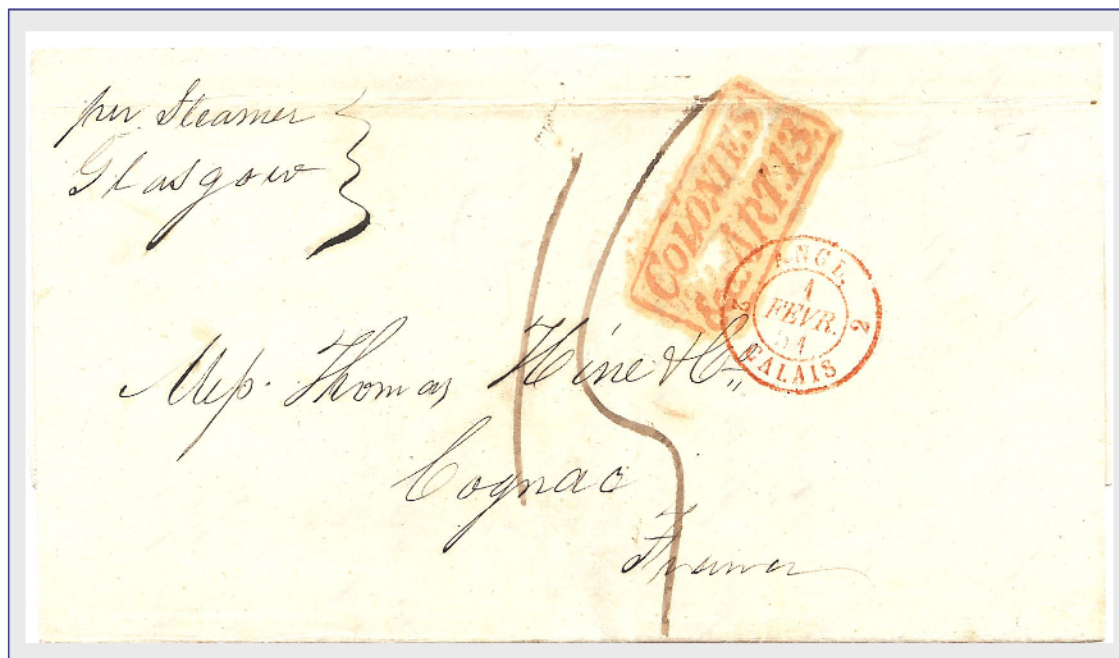 per Steamer
Glasgow
COLONIES
&c. ART. 13.
ANGL.
1
FEVR.
51
2 CALAIS 2
15
Mess. Thomas Hine & Co
Cognac
France